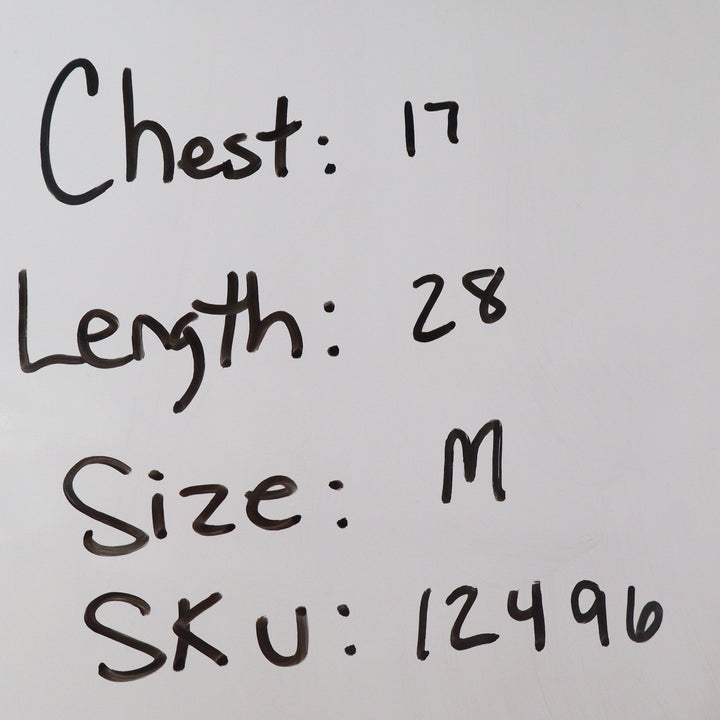 Chest: 17
Length: 28
Size: M
SKU: 12496